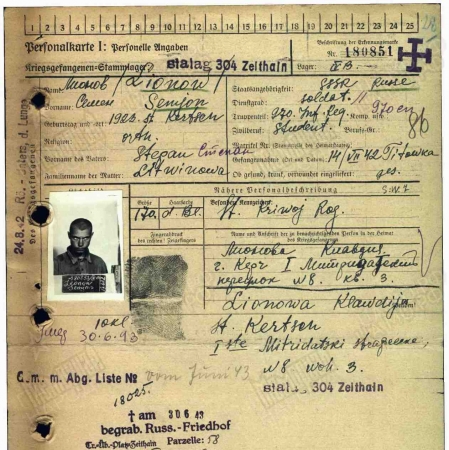 1 2 3 4 5 6 7 8 9 10 11 12 13 14 15 16 17 18 19 20 21 22 23 24 25
Personalkarte I: Personelle Angaben
Beschriftung der Erkennungsmarke
Nr. 180851
Kriegsgefangenen-Stammlager: Stalag 304 Zeithain
Lager: IV B.
Name: Лионов / Lionow /
Staatsangehörigkeit: SSSR Russe
Vorname: Семен Semjon
Dienstgrad: soldat.
Truppenteil: 270. Inf. Reg.
970 en
Geburtstag und -ort: 1923. st Kertsch
Zivilberuf: Student. Berufs-Gr.
86
Religion: orth.
Matrikel Nr.
Vorname des Vaters: Stepan Степан
Gefangennahme (Ort und Datum): 14/VII 42
Familienname der Mutter: Litwinowa
Ob gesund, krank, verwundet eingeliefert: ges.
24.8.42
Lichtbild
Nähere Personalbeschreibung
Größe Haarfarbe Besondere Kennzeichen:
170. st. Kriwoj Rog.
Fingerabdruck
des rechten Zeigefingers
Name und Anschrift der zu benachrichtigenden Person in der Heimat
des Kriegsgefangenen
Лионова Клавдия
г. Керч I Митридатский
переулок N8. кв. 3.
Lionowa Klawdija
st. Kertsch
I ste Mitridatski
N8 woh. 3.
30.6.43
G. m. m. Abg. Liste № vom Juni 43
18025.
Stalag 304 Zeithain
† am 30 6 43
begrab. Russ.-Friedhof
Tr.-Üb.-Platz Zeithain Parzelle: 58